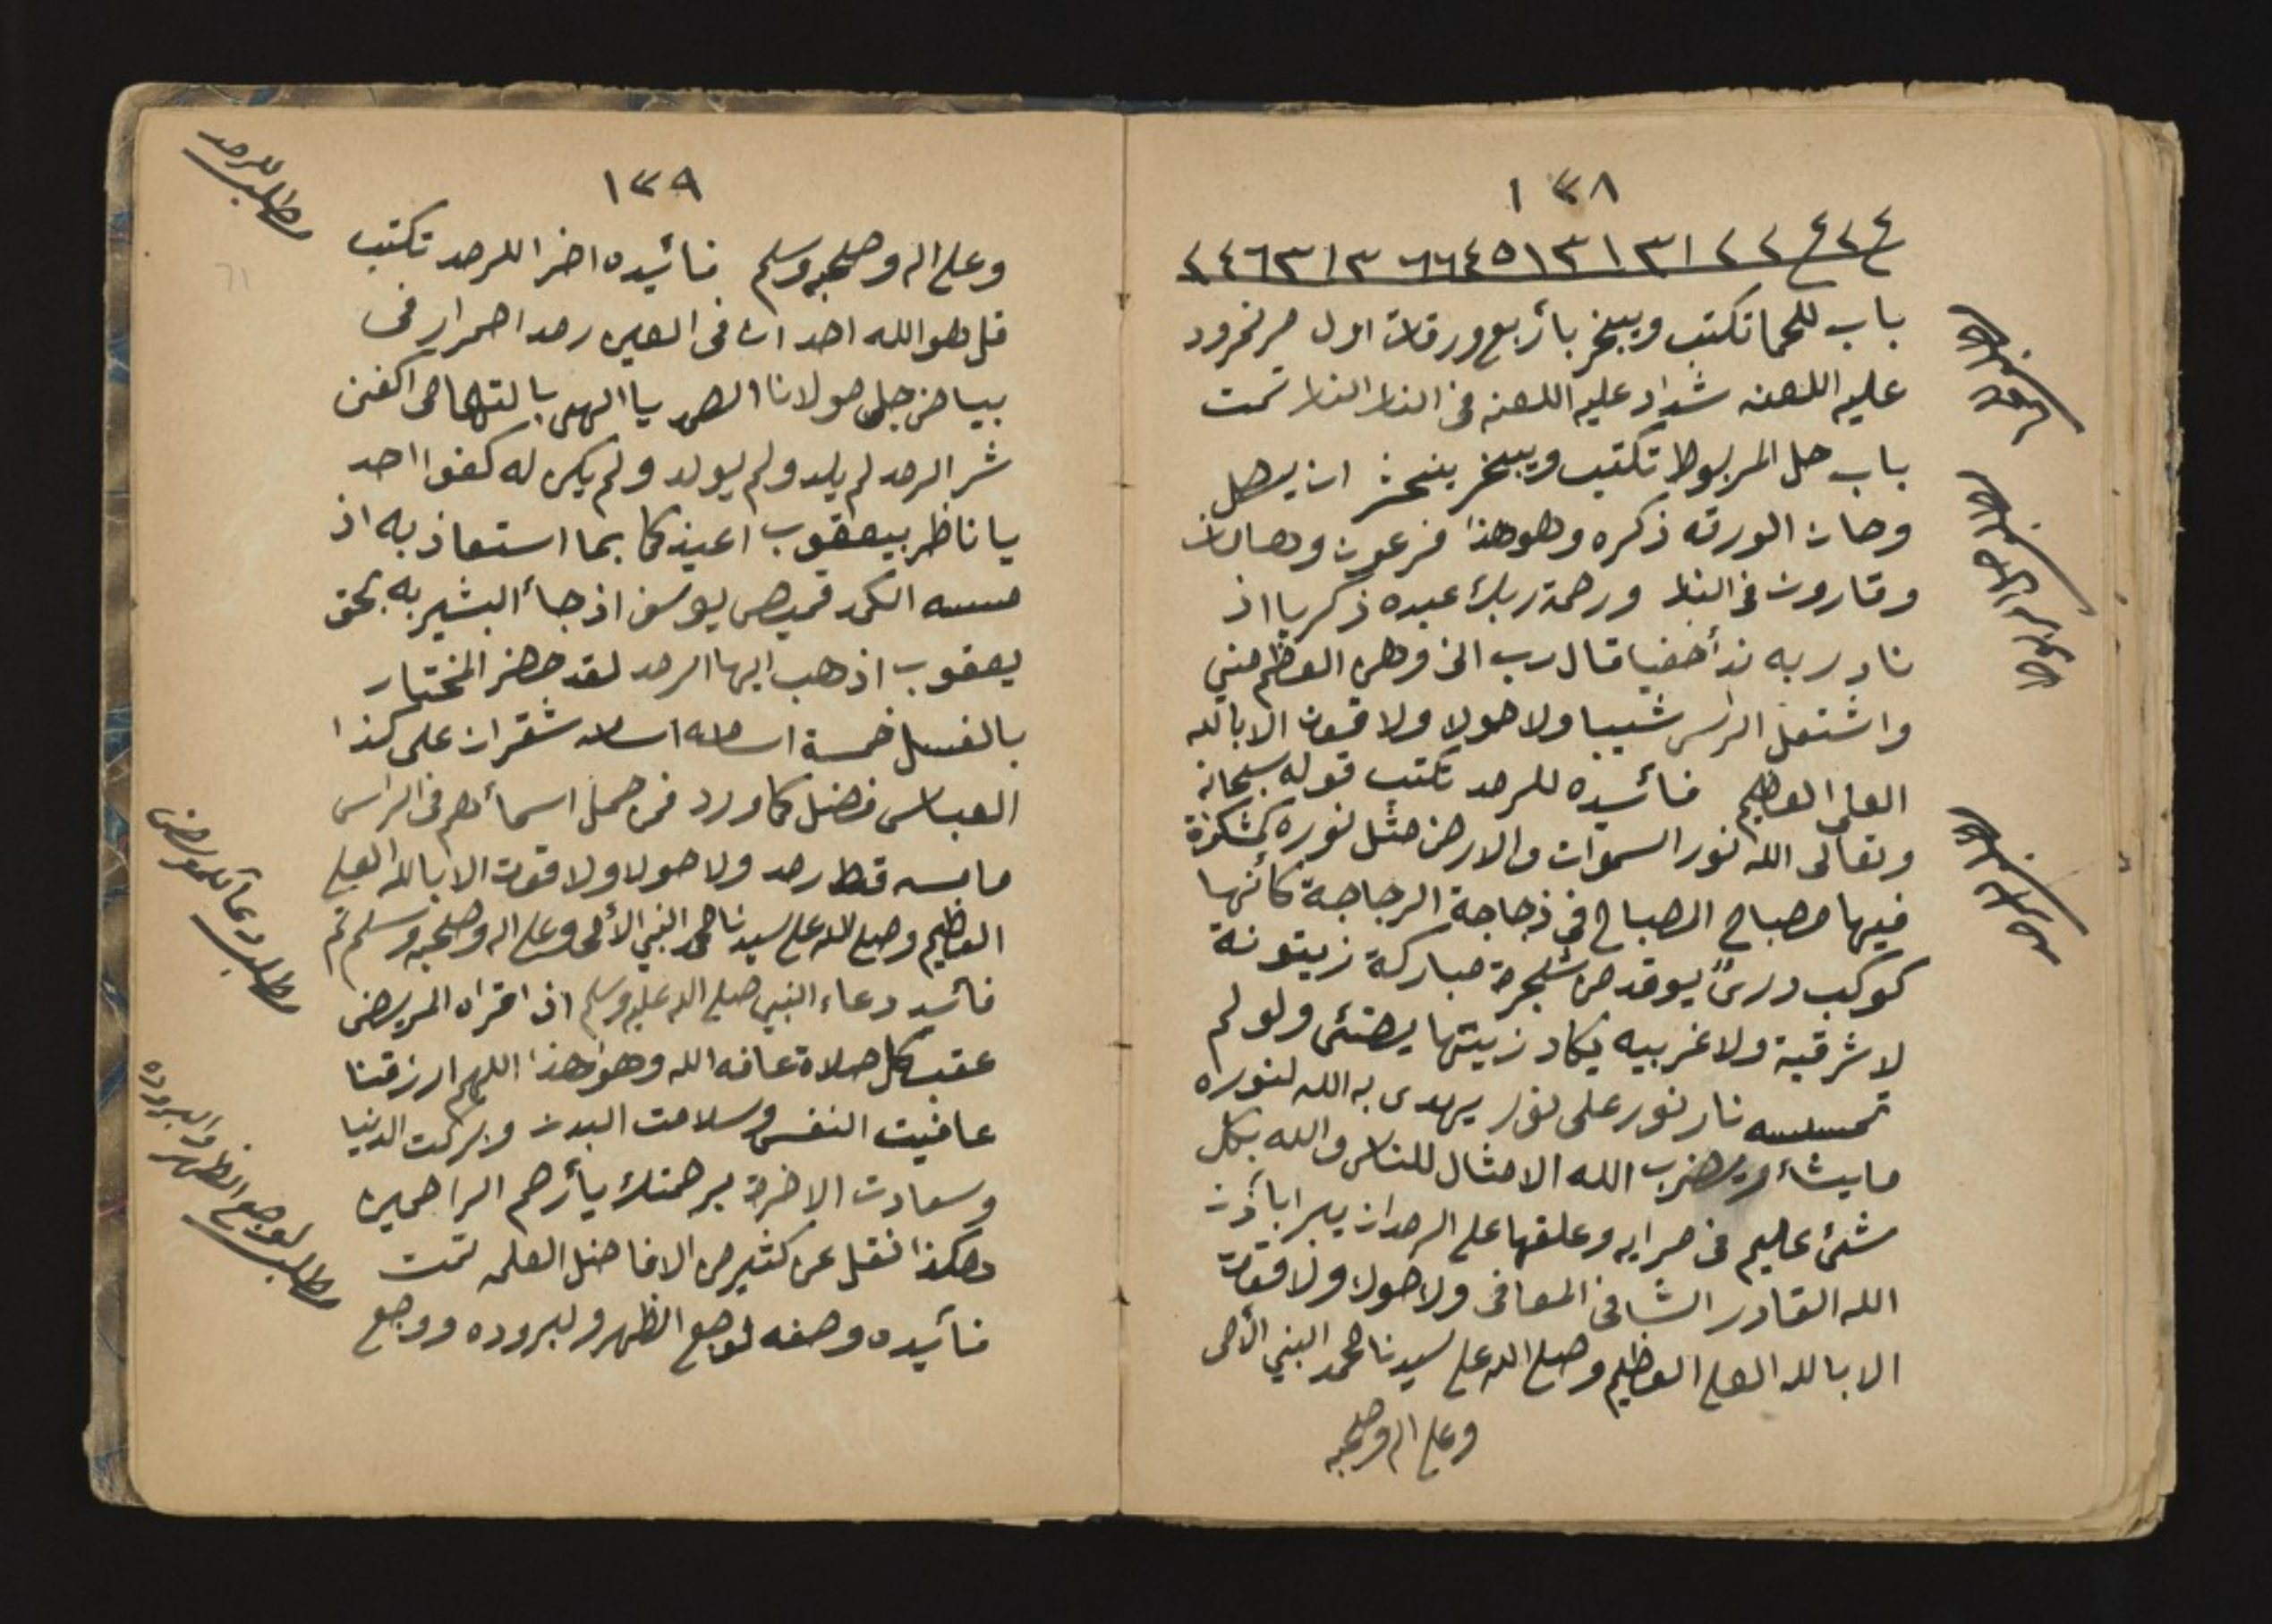 ١٣٨
٤٢٤ ٢٢ ١٣١٣١٥٤٦٦ ٣١٣٦٤٢
باب للحما تكتب ويبخر بأربع ورقات اول مر نمرود
عليه اللعنه شداد عليه اللعنه فى النار النار تمت
باب حل المربوط تكتب ويبخر ينحل ان يصل
وحات الورقه ذكره وهو هذا فرعون وهامان
وقارون فى النار ورحمة ربك عبده ذكريا اذ
نادا ربه ندأ خفيا قال رب انى وهن العظم مني
واشتعل الراس شيبا ولا حولا ولا قوت الا بالله
العلى العظيم فائيده للرمد تكتب قوله سبحانه
وتعالى الله نور السموات والارض مثل نوره كمشكوة
فيها مصباح المصباح فى ذجاجة الزجاجة كأنها
كوكب درىً يوقد من شجرة مباركة زيتونة
لا شرقية ولا غربيه يكاد زيتها يضئى ولو لم
تمسسه نار نور على نور يهدى به الله لنوره
ما يشاء ويضرب الله الامثال للناس والله بكل
شئ عليم فى مرايه وعلقها على الرمدان يبرا بأذن
الله القادر الشافى المعافى ولا حولا ولا قوت
الا بالله العلى العظيم وصلى الله على سيدنا محمد النبي الأمى
وعلى اله وصحبه
مطلب
مطلب
المربوط
مطلب
للرمد
١٣٩
وعلى اله وصحبه وسلم فائيده اخرا للرمد تكتب
قل هو الله احد ان فى العين رمد احمرار فى
بياض جل مولانا الصمد يا الهى بالتهامى اكفنى
شر الرمد لم يلد ولم يولد ولم يكن له كفوا احد
يا ناظر بيعقوب اعيذكما بما استعاذ به اذ
مسسه الكمد قميص يوسف اذ جأ البشير به بحق
يعقوب اذهب ايها الرمد لقد جهز المختار
بالغسل خمسة اسامه اسامه شقران على كذا
العباس فضل كما ورد فمن حمل اسمأهم فى الراس
مامسه قط رمد ولا حولا ولا قوت الا بالله العلى
العظيم وصلى الله على سيدنا محمد النبي الأمى وعلى اله وصحبه وسلم تم
فائيد دعاء النبي صلى الله عليه وسلم اذا قراه المريض
عقب كل صلاة عافه الله وهو هذا اللهم ارزقنا
عافيت النفس وسلامت البدن وبركت الدنيا
وسعادت الاخرة برحمتك يأرحم الراحمين
هكذا نقل عن كثير من الافاضل العلمه تمت
فائيده وصفه لوجع الظهر ولبروده ووجع
مطلب للرمد
مطلب دعأ للمريض
مطلب لوجع الظهر والبروده